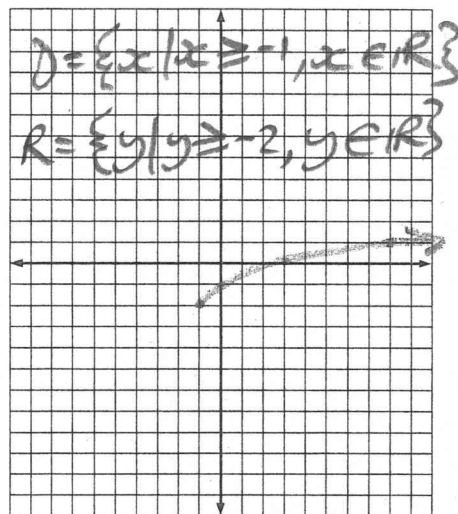 D={x|x≥-1,x∈ℝ}
R={y|y≥-2,y∈ℝ}